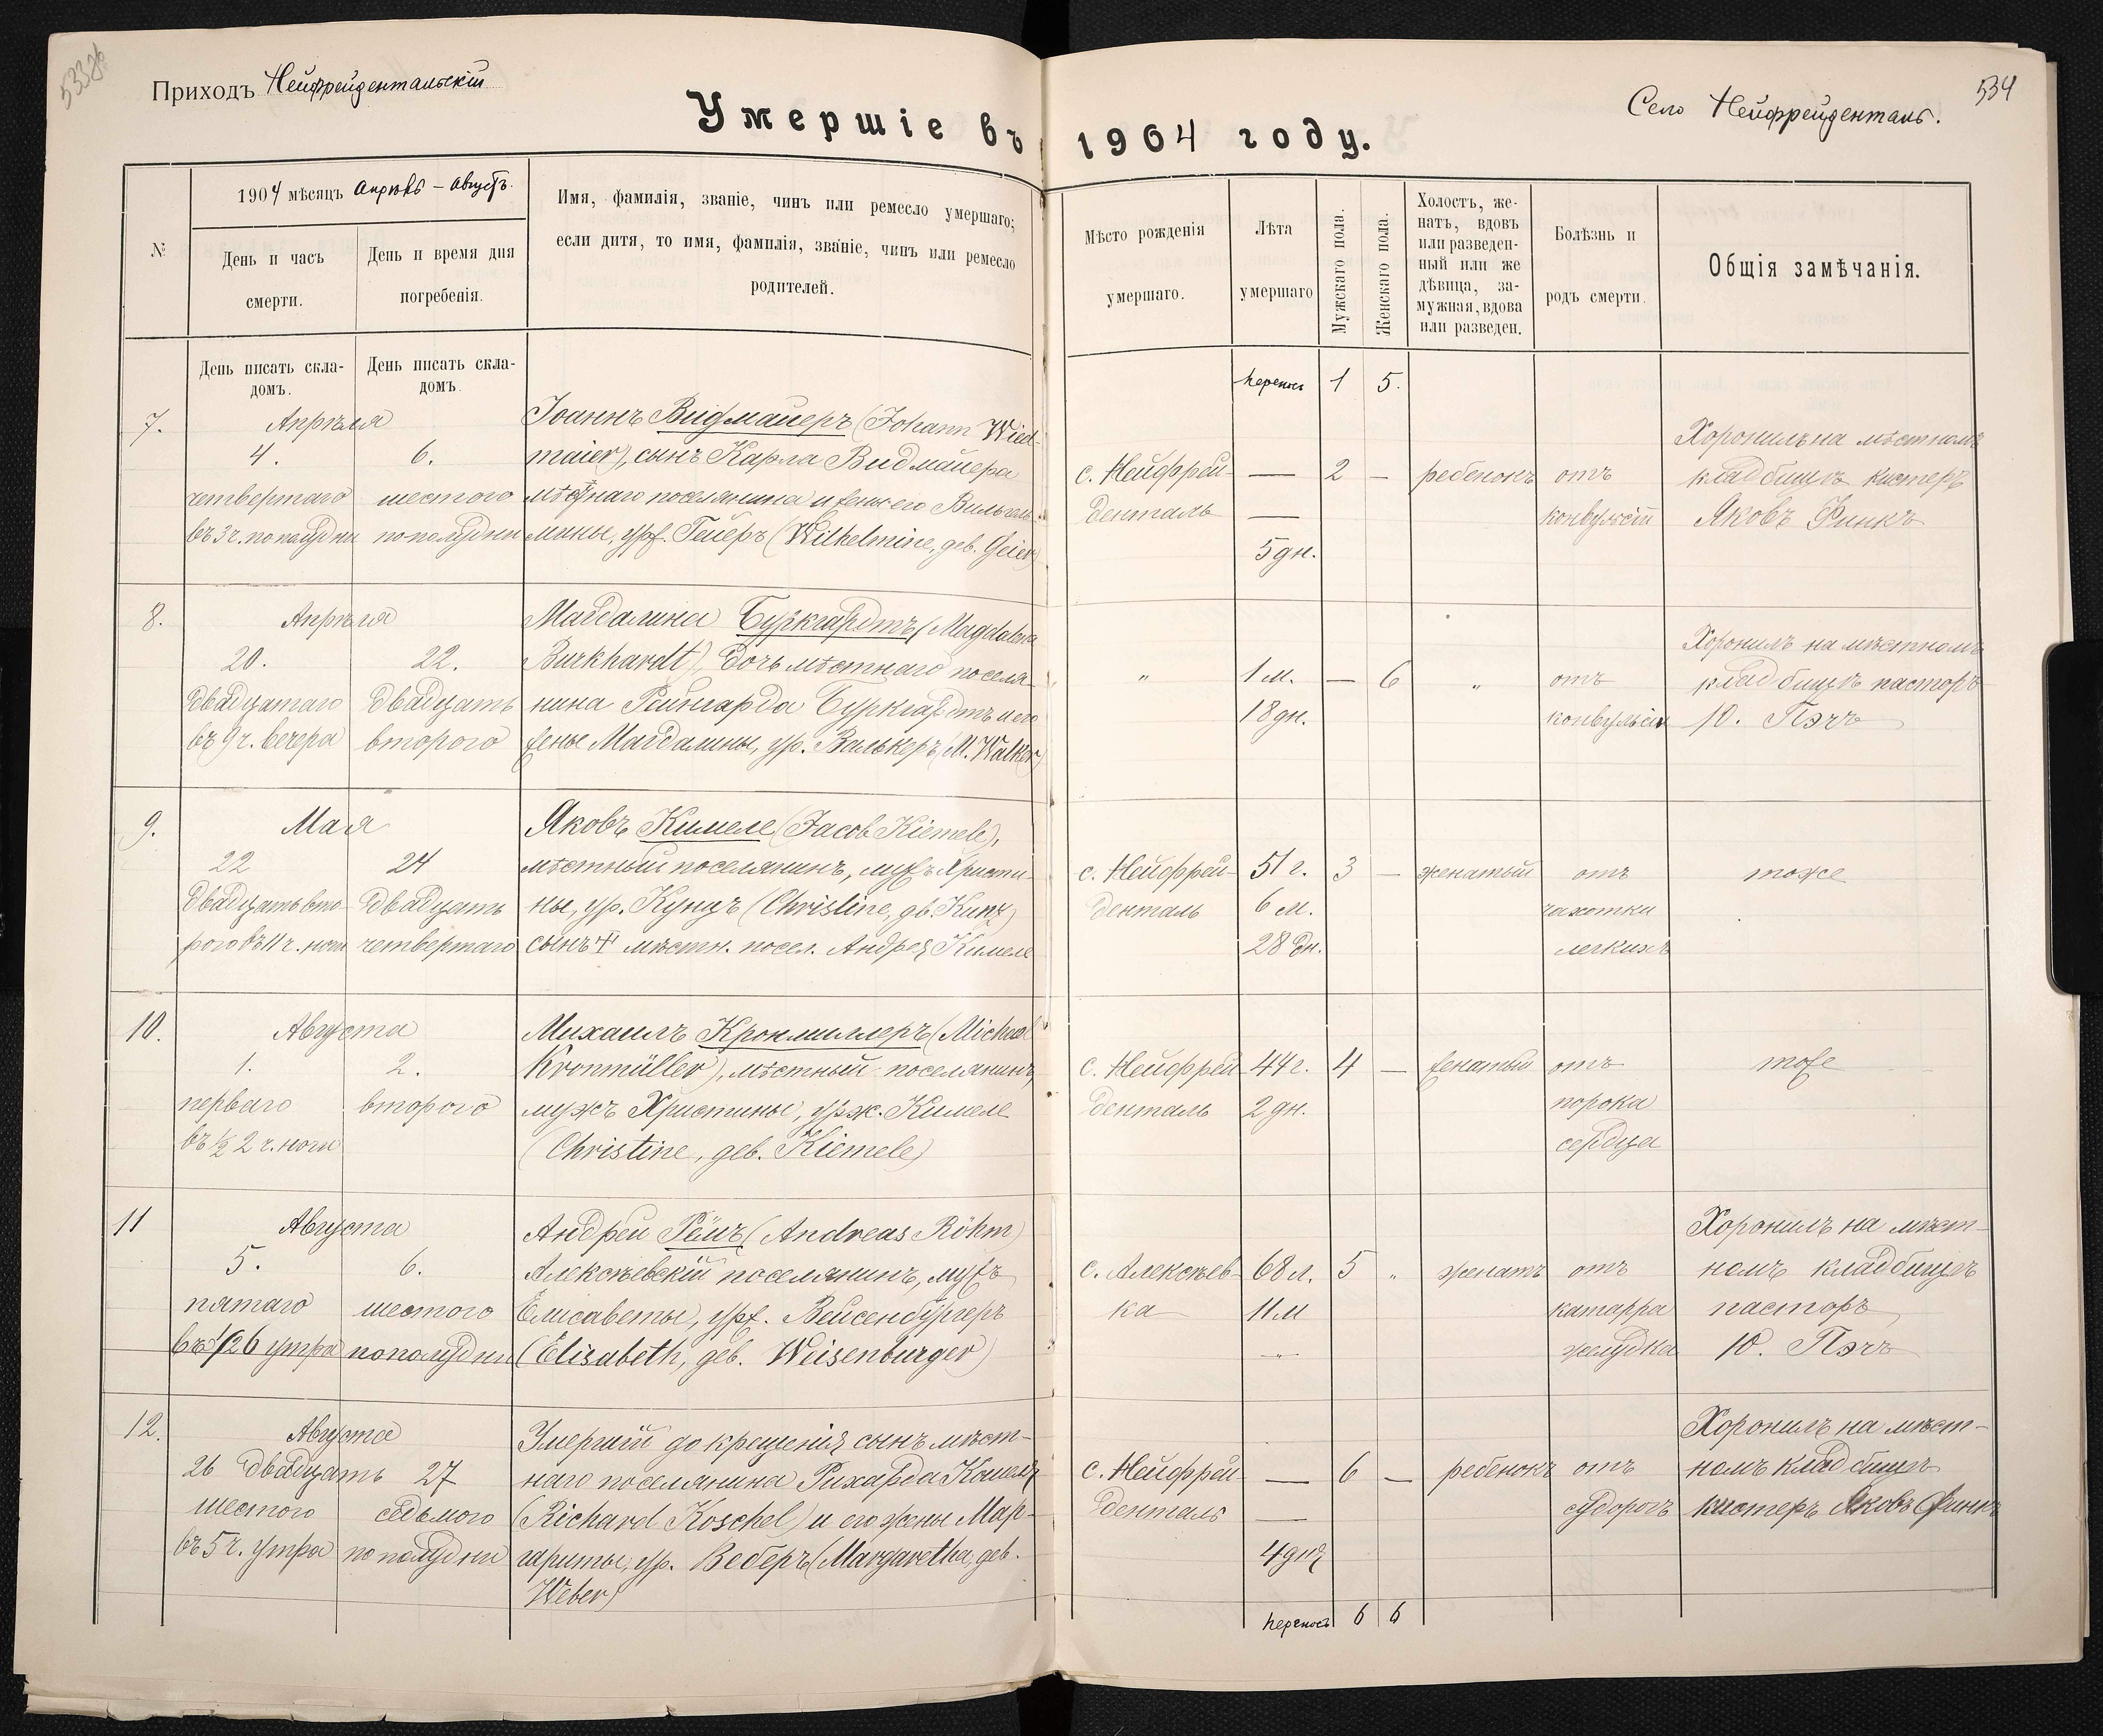 533об
Приходъ Нейфрейдентальскій
Умершіе въ 1904 году.
Село Нейфрейденталь.
534
№
1904 мѣсяцъ Апрѣль – Августъ.
День и часъ смерти.
День и время дня погребенія.
Имя, фамилія, званіе, чинъ или ремесло умершаго;
если дитя, то имя, фамилія, званіе, чинъ или ремесло
родителей.
Мѣсто рожденія умершаго.
Лѣта умершаго
Мужскаго пола.
Женскаго пола.
Холостъ, же-
натъ, вдовъ
или разведен-
ный или же
дѣвица, за-
мужная, вдова
или разведен.
Болѣзнь и родъ смерти.
Общія замѣчанія.
День писать скла-
домъ.
День писать скла-
домъ.
переносъ 1 5.
7.
Апрѣля
4. 6.
четвертаго шестого
въ 3 ч. пополудни пополудни
Іоаннъ Видмайеръ (Johann Wied-
maier), сынъ Карла Видмайера
мѣстнаго поселянина и жены его Вильгель-
мины, урж. Гейеръ (Wilhelmine, geb. Geier)
с. Нейфрей-
денталь
—
—
5 дн.
2 —
ребенокъ
отъ
конвульсій
Хоронилъ на мѣстномъ
кладбищѣ кистеръ
Яковъ Финкъ
8.
Апрѣля
20. 22.
двадцатаго двадцать
въ 9 ч. вечера второго
Магдалина Буркгардтъ (Magdalena
Burkhardt), дочь мѣстнаго поселя-
нина Рейнгарда Буркгардтъ и его
жены Магдалины, ур. Валькеръ (M. Walker)
"
1 м.
18 дн.
— 6
"
отъ
конвульсій
Хоронилъ на мѣстномъ
кладбищѣ пасторъ
Ю. Пэчъ
9.
Мая
22 24
двадцать вто- двадцать
рого въ 11 ч. ночи четвертаго
Яковъ Кимеле (Jacob Kiemele),
мѣстный поселянинъ, мужъ Христи-
ны, ур. Кунцъ (Christine, gb. Kunz)
сынъ † мѣстн. посел. Андрея Кимеле
с. Нейфрей-
денталь
51 г.
6 м.
28 дн.
3 —
женатый
отъ
чахотки
легкихъ
тоже
10.
Августа
1. 2.
перваго второго
въ ½ 2 ч. ночи
Михаилъ Кронмиллеръ (Michael
Kronmüller), мѣстный поселянинъ,
мужъ Христины, урж. Кимеле
(Christine, geb. Kiemele)
с. Нейфрей
денталь
44 г.
2 дн.
4 —
женатый
отъ
порока
сердца
тоже
11
Августа
5. 6.
пятаго шестого
въ ½ 6 утра пополудни
Андрей Рёмъ (Andreas Röhm)
Алексѣевскій поселянинъ, мужъ
Елисаветы, урж. Вейсенбургеръ
(Elisabeth, geb. Weisenburger)
с. Алексѣев-
ка
68 л.
11 м
—"—
5 "
женатъ
отъ
катарра
желудка
Хоронилъ на мѣст-
номъ кладбищѣ
пасторъ
Ю. Пэчъ
12.
Августа
26 двадцать 27
шестого седьмого
въ 5 ч. утра пополудни
Умершій до крещенія сынъ мѣст-
наго поселянина Рихарда Кошель
(Richard Koschel) и его жены Мар-
гариты, ур. Веберъ (Margaretha, geb.
Weber)
с. Нейфрей
денталь
—
—
4 дня
6 —
ребенокъ
отъ
судорогъ
Хоронилъ на мѣст-
номъ кладбищѣ
кистеръ Яковъ Финкъ
переносъ 6 6